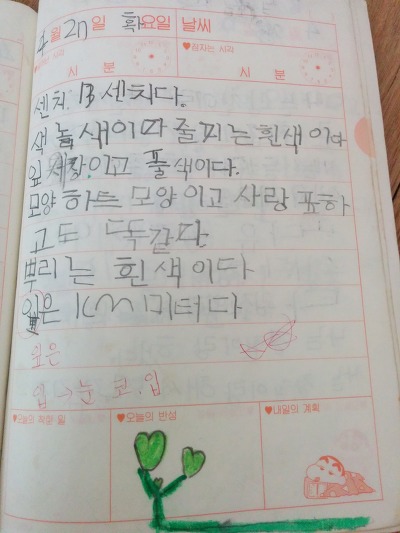 4월 27일 화요일 날씨
♥잠자는 시각
시 분 시 분
센치 13 센치다.
색 놀 색이다 줄피는 흰색이다
잎 이고 풀색이다.
모양 하트 모양 이고 사랑 표하
고도 똑같다
뿌리는 흰색이다
잎은 1cm 미터다
잎은
입 → 눈 코. 입
♥오늘의 착한 일 ♥오늘의 반성 ♥내일의 계획